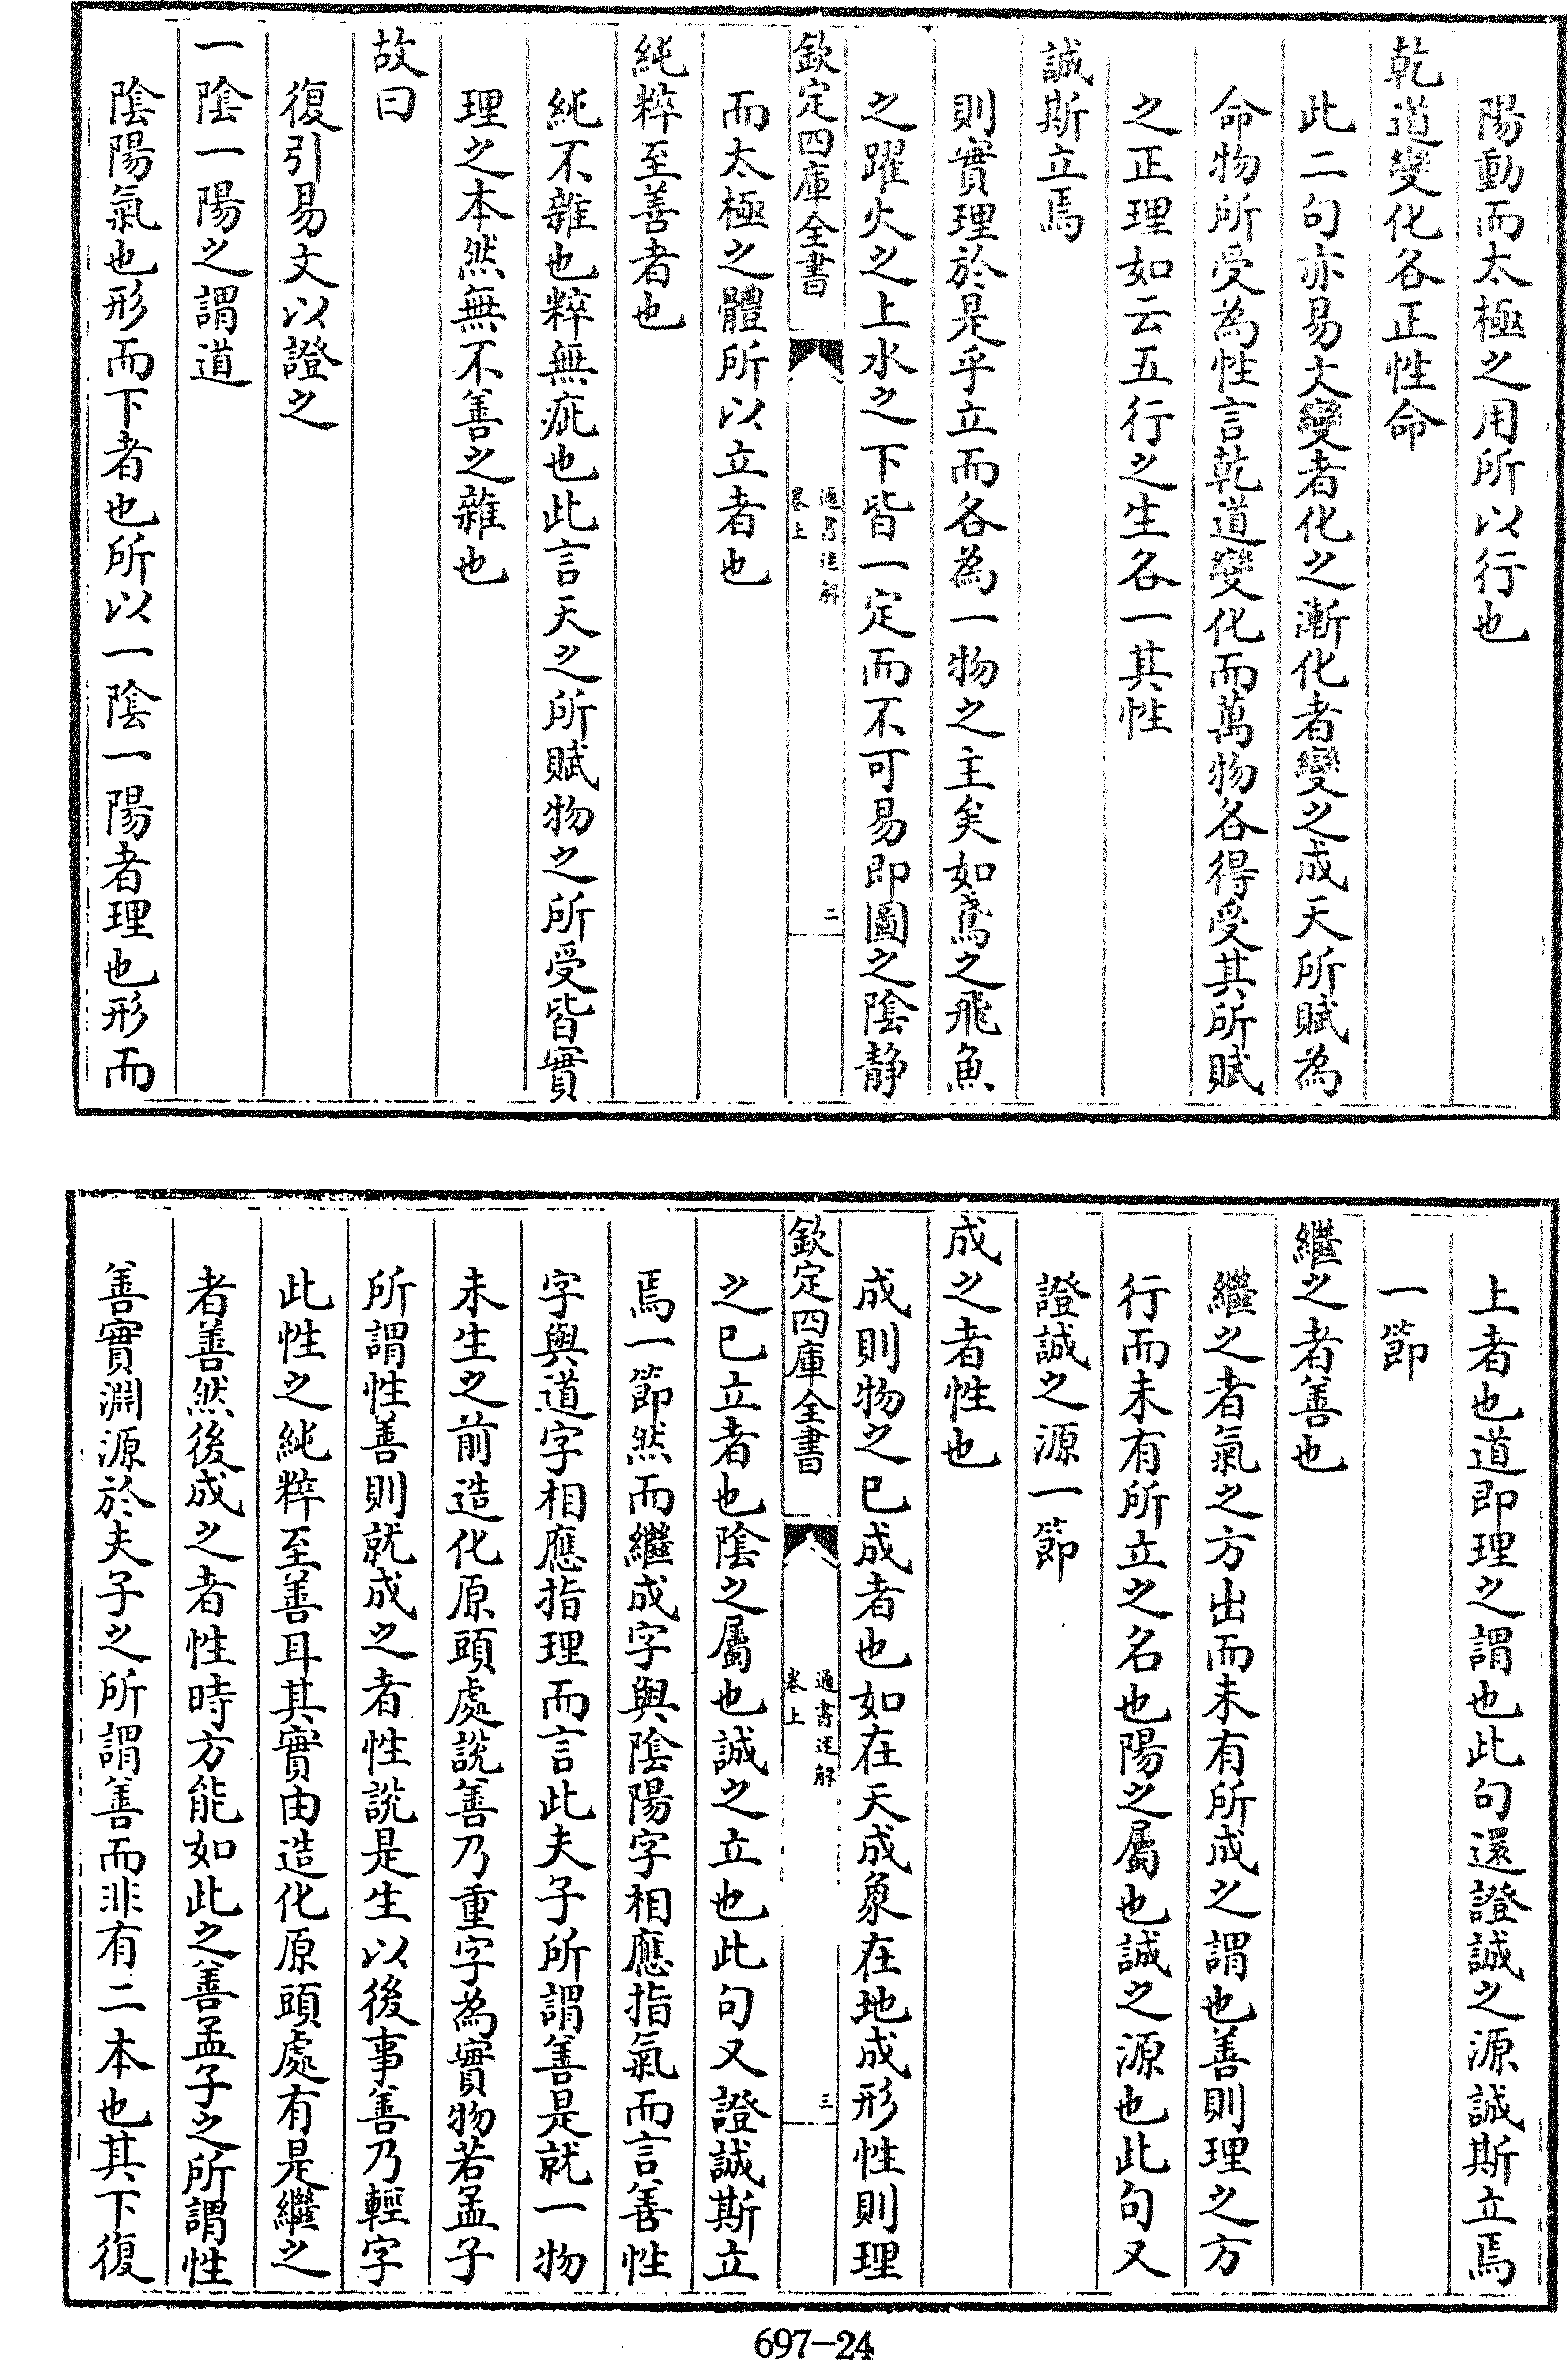 陽動而太極之用所以行也
乾道變化各正性命
此二句亦易文變者化之漸化者變之成天所賦為
命物所受為性言乾道變化而萬物各得受其所賦
之正理如云五行之生各一其性
誠斯立焉
則實理於是乎立而各為一物之主矣如鳶之飛魚
之躍火之上水之下皆一定而不可易即圖之陰静
欽定四庫全書
通書述解
卷上
二
而太極之體所以立者也
純粹至善者也
純不雜也粹無疵也此言天之所賦物之所受皆實
理之本然無不善之雜也
故曰
復引易文以證之
一陰一陽之謂道
陰陽氣也形而下者也所以一陰一陽者理也形而
上者也道即理之謂也此句還證誠之源誠斯立焉
一節
繼之者善也
繼之者氣之方出而未有所成之謂也善則理之方
行而未有所立之名也陽之屬也誠之源也此句又
證誠之源一節
成之者性也
成則物之已成者也如在天成象在地成形性則理
欽定四庫全書
通書述解
卷上
三
之已立者也陰之屬也誠之立也此句又證誠斯立
焉一節然而繼成字與陰陽字相應指氣而言善性
字與道字相應指理而言此夫子所謂善是就一物
未生之前造化原頭處說善乃重字為實物若孟子
所謂性善則就成之者性說是生以後事善乃輕字
此性之純粹至善耳其實由造化原頭處有是繼之
者善然後成之者性時方能如此之善孟子之所謂性
善實淵源於夫子之所謂善而非有二本也其下復
697-24